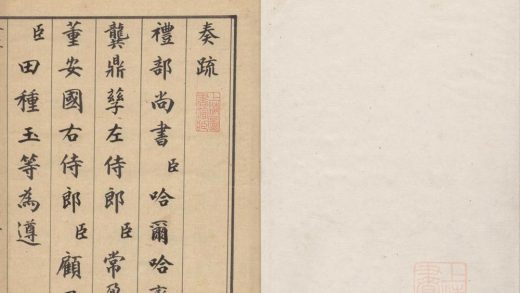 奏疏
禮部尚書臣哈爾哈
龔鼎孳左侍郎臣常
董安國右侍郎臣顧
臣田種玉等為遵